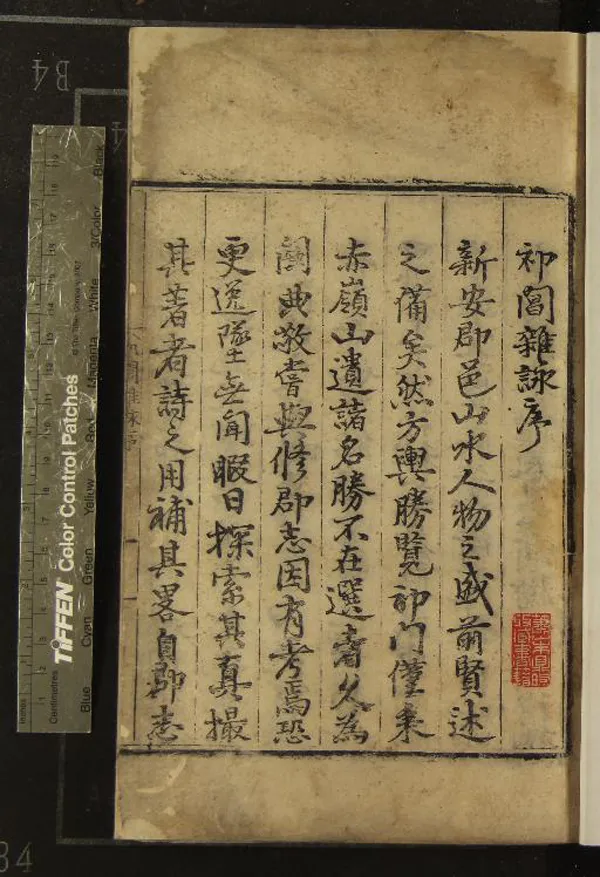 祁閶雜詠序
新安郡邑山水人物之盛前賢述
之備矣然方輿勝覽祁門僅朿
赤嶺山遺諸名勝不在選者久為
闕典敬嘗與修郡志因有考焉恐
更遂墜無聞暇日探索其真撮
其著者詩之用補其畧自郡志
B4
TIFFEN Color Control Patches
Blue Cyan Green Yellow Red Magenta White 3/Color Black
Inches
Centimetres
84